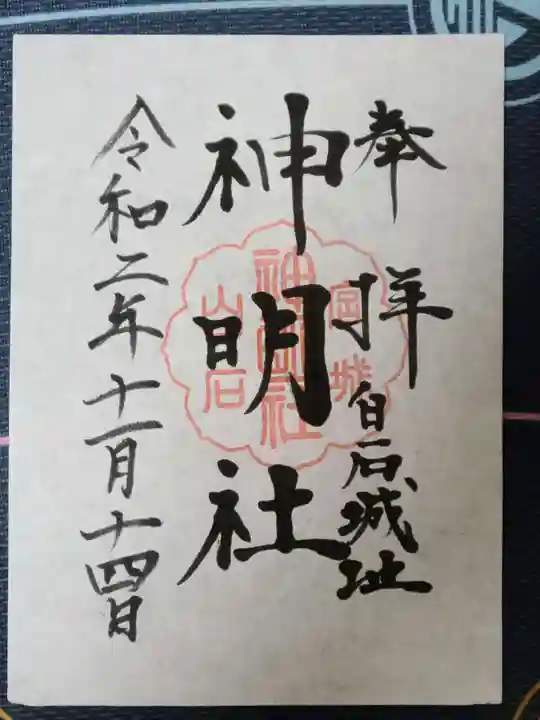 奉拝 白石城址
神明社
宮城
神明社
白石
令和二年十一月十四日